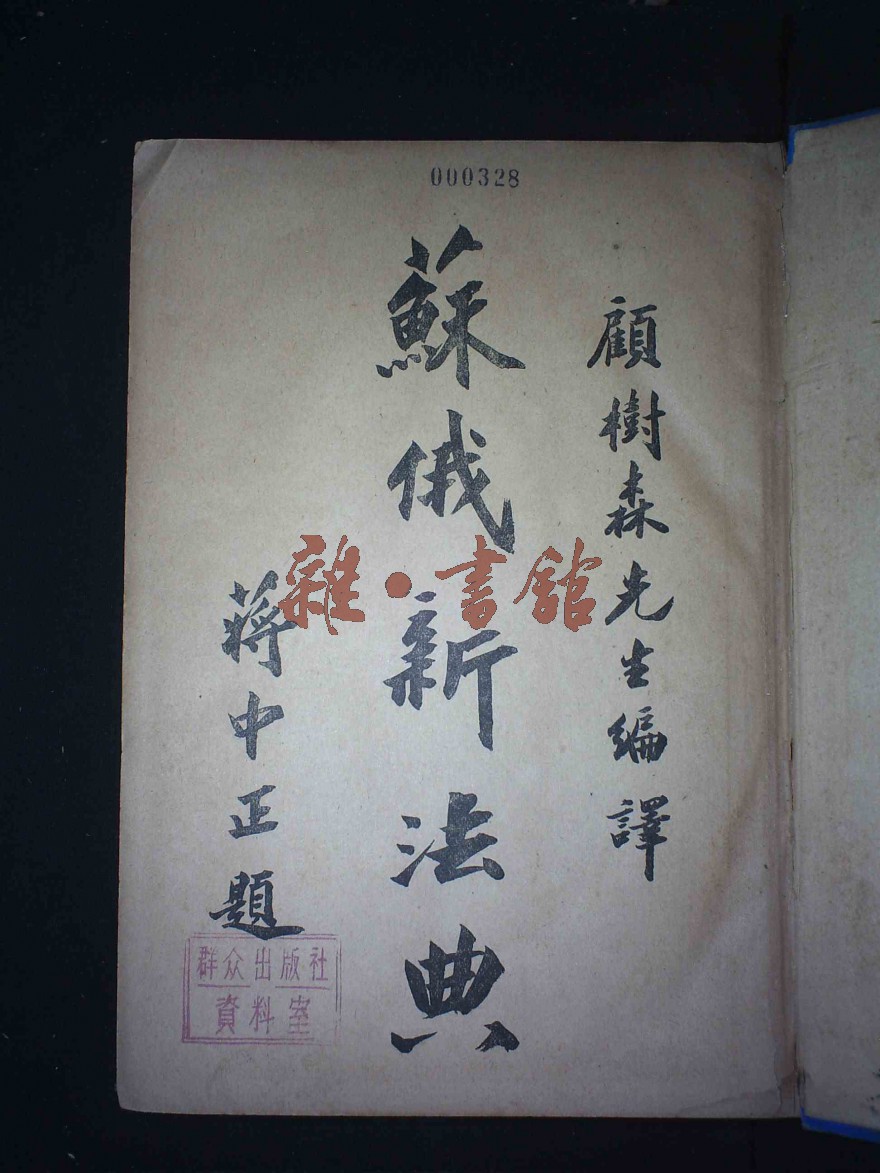 000328
顧樹森先生編譯
蘇俄新法典
蔣中正題
群众出版社
資料室
雜·書館